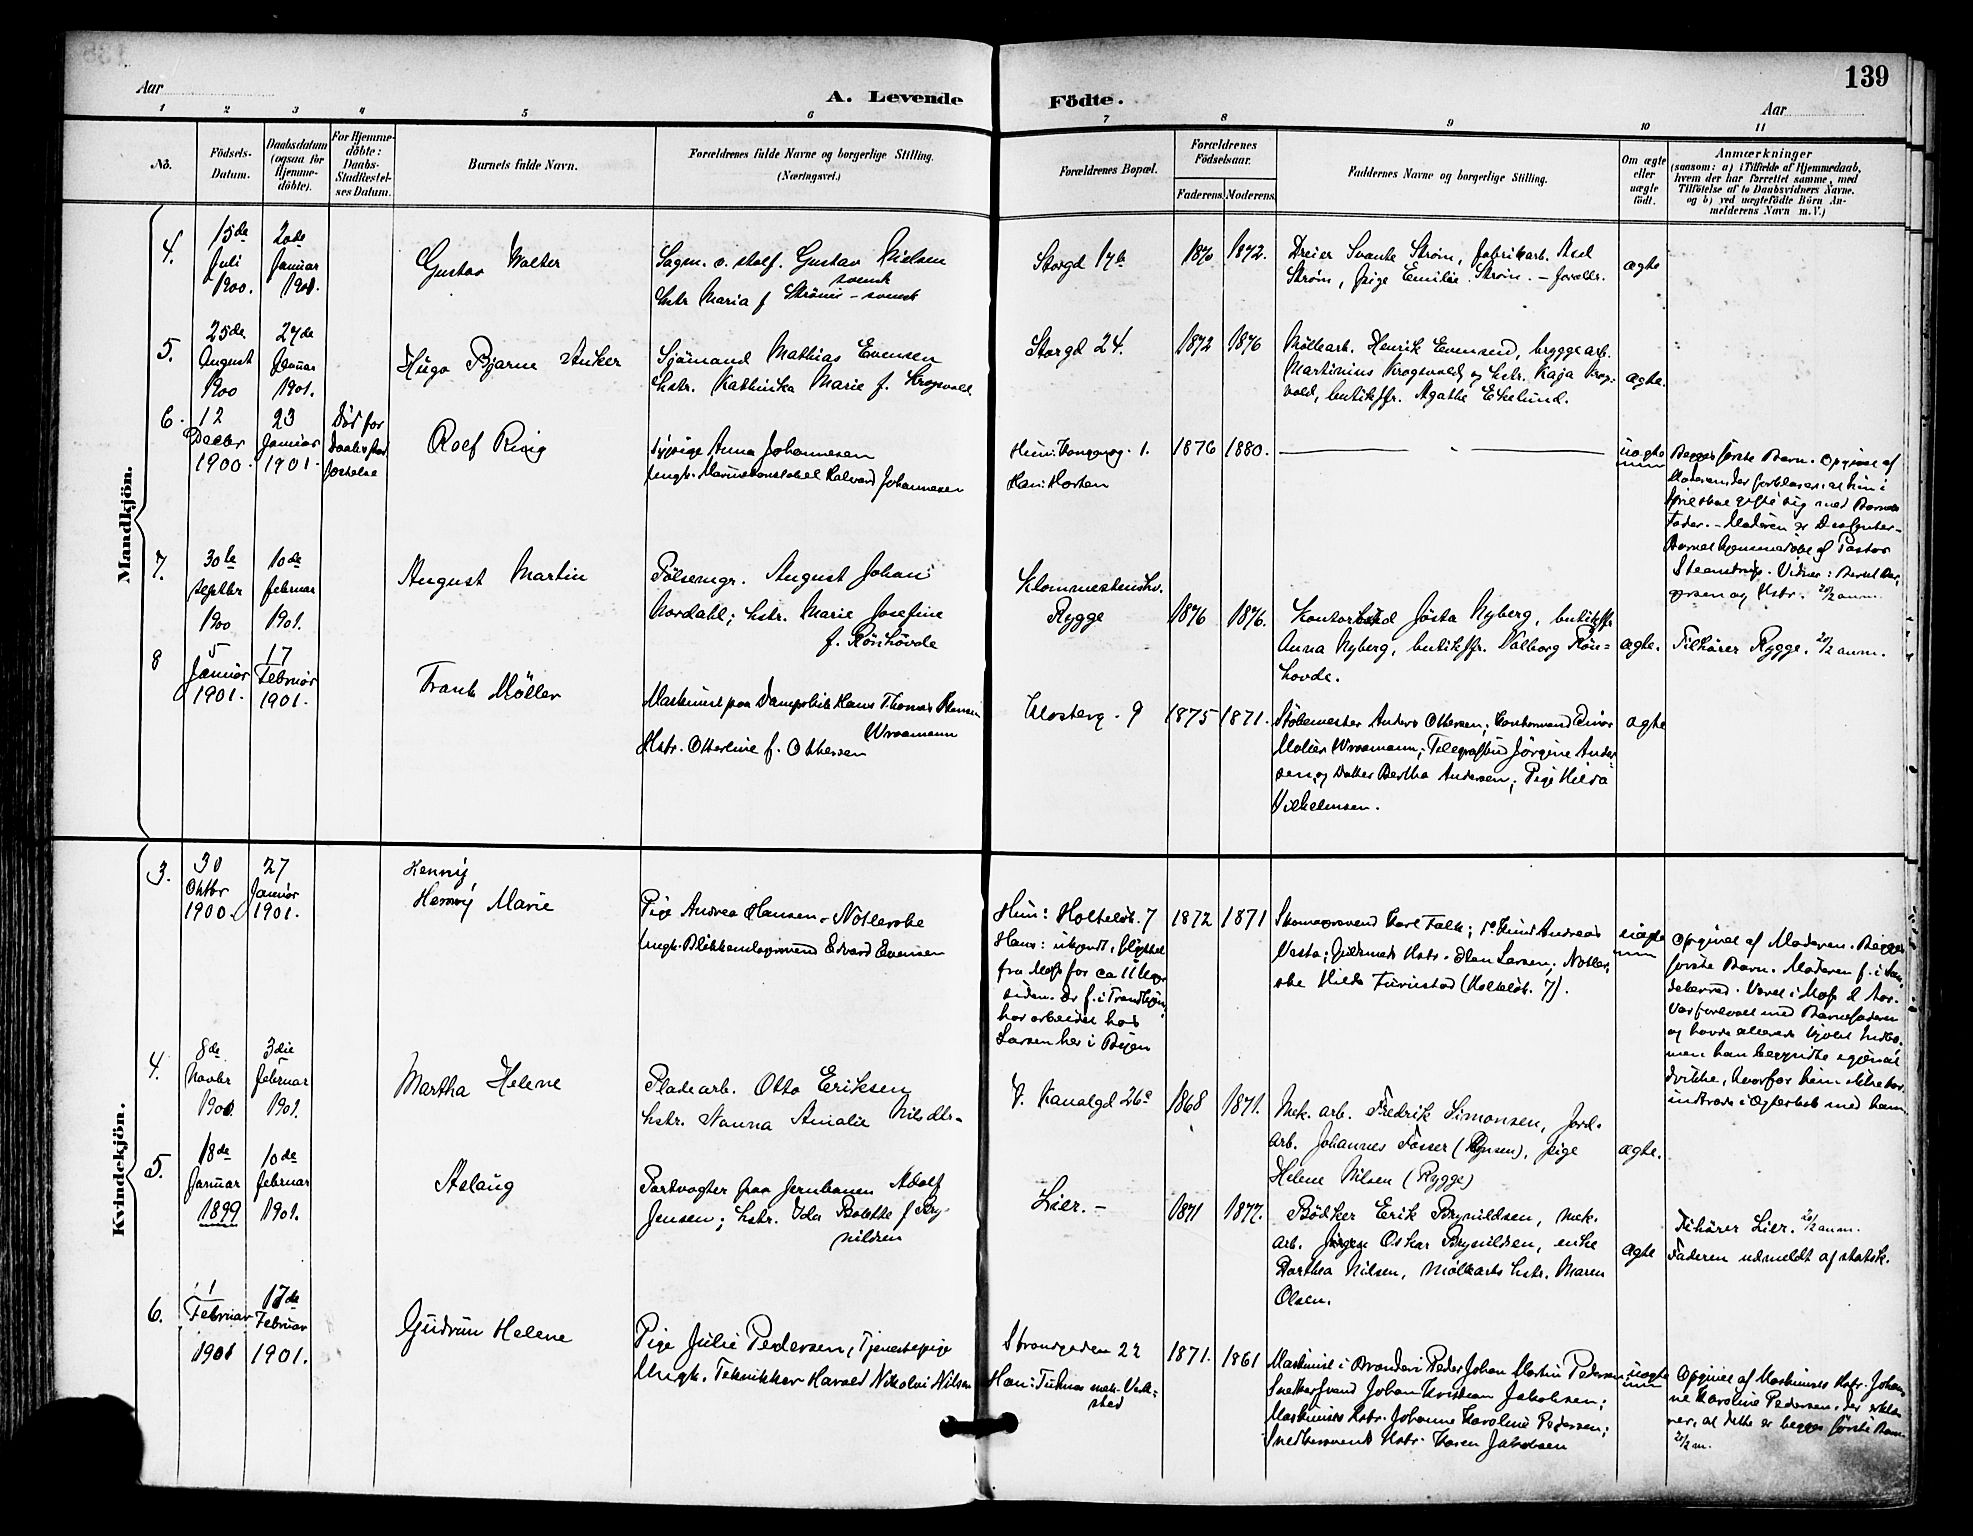 139
Aar
A. Levende Födte.
Aar
1 2 3 4 5 6 7 8 9 10 11
No.
Födsels-Datum.
Daabsdatum (ogsaa for Hjemme-döbte).
For Hjemme-döbte: Daabs-Stadfæstel-ses Datum.
Barnets fulde Navn.
Forældrenes fulde Navne og borgerlige Stilling.
(Næringsvei.)
Forældrenes Bopæl.
Forældrenes Födselsaar.
Faderens. Moderens.
Faddernes Navne og borgerlige Stilling.
Om ægte eller uægte födt.
Anmærkninger
(saasom: a) i Tilfælde af Hjemmedaab,
hvem der har forrettet samme, med
Tilföielse af to Daabsvidners Navne,
og b) ved uægtefödte Börn An-
melderens Navn m. V.)
Mandkjön.
4. 15de Juli 1900. 20de Januar 1901.
Gustav Walter
Sagm. o. stolf. Gustav Nielsen
svensk
Hstr. Maria f Ström - svensk
Storgd 17b
1870 1872.
Dreier Svante Strøm, fabrikarb. Axel
Strøm, pige Emilie Strøm. - forældr.
ægte
5. 25de August 1900 27de Januar 1901.
Hugo Bjarne Anker
Sjömand Mathias Evensen
Hstr. Kathinka Marie f. Krogsvold
Storgd 24.
1872 1876
Möllearb. Henrik Evensen, bryggearb.
Martinius Krogsvold og Hstr. Kaja Krog-
vold, butikffr. Agathe Ekelund.
ægte.
6. 12 Decbr 1900. 23 Januar 1901.
Död för Daabsstad
fæstelse
Rolf Ring
Sypige Anna Johannesen
Ungk. Marinekonstabel Halvard Johannesen
Hun: Kongensg. 1.
Han: Horten
1876 1880.
uægte
Begges förste Barn. Opgivet af
Moderen der forklarer, at hun i
April skal gifte sig med Barnets
Fader. - Moderen er Dissenter -
Barnet hjemmedöbt af Pastor
Steenstrup. Vidner: Bernt
og Hstr. 20/2 anm.
7. 30te septbr 1900 10de februar 1901.
August Martin
Pölsemgr. August Johan
Nordahl; hstr. Marie Josefine
f. Rönhövde
Klommestenshv.
Rygge
1876 1876.
Kontorbud Jösta Nyberg, butikffr
Anna Nyberg, butikffr. Valborg Rön-
hovde.
ægte.
Tilhører Rygge. 20/2 anm.
8 5 Januar 1901. 17 Februar 1901.
Frank Möller
Maskinist paa Dampskib Hans Thomas Hansen
Wroamann
Hstr. Otterline f. Ottersen
Klosterg. 9
1875 1871.
Stöbemester Anders Ottersen; Kontormand Einar
Wroamann; Telegrafbud Jörgine Ander
sen, og Datter Bertha Andersen; Pige Hilda
Vilhelmsen.
ægte
Kvindekjön.
3. 30 Oktbr 1900. 27 Januar 1901.
Henny
Henny Marie
Pige Andrea Hansen, Notlerske
Ungk. Blikkenslagersvend Edvard Evensen
Hun: Holtelök. 7
Hans: ukjendt, flyttet
fra Moss for ca 11 Mdgr
siden. Er f. i Trondhjem,
har arbeidet hos
Larsen her i Byen
1872 1871
Skomagersvend Karl Falk; do Knut Andreas
Vesta; Hstr. Elen Larsen; Notler-
ske Hilda Furustad (Holtelök. 7).
uægte
Opgivet af Moderen. Begges
förste Barn. Moderen f. i San-
deherred. Været i Moss 2 Aar.
Var forlovet med Barnefaderen
og havde allerede kjöbt Indbo,
men han begyndte igjen at
drikke, hvorfor hun ikke tör
indtræde i Ægteskab med ham.
4. 8de Novbr 1900. 3die februar 1901.
Martha Helene
Pladearb. Otto Eriksen
Hstr. Nanna Amalie Nilsdtr.
V. Kanalgd 26a
1868 1871.
Mek. arb. Fredrik Simonsen, Jord-
arb. Johannes Fosser (Rynsen), pige
Helene Nilsen (Rygge)
ægte.
5. 18de Januar 1899 10de februar 1901.
Aslaug
Portvogter paa Jernbanen Adolf
Jensen; hstr. Ida Bolette f. Bry-
nildsen
Lier. -
1871 1877.
Bödker Erik Brynildsen, mek.
arb. Oskar Brynildsen, enke
Dorthea Nilsen, möllearb. hstr. Maren
Olsen.
ægte
Tilhörer Lier. 20/2 anm.
Faderen udmeldt af statsk.
6. 1 Februar 1901 17de Februar 1901.
Gudrun Helene
Pige Julie Pedersen, Tjenestepige
Ungk. Tekniker Harald Nikolai Nilsen
Strandgaden 22
Han: Tuknes mek. Værk-
sted
1871. 1861
Maskinist i Brænderi Peder Johan Martin Pedersen
Snedkersvend Johan Kristian Jakobsen;
Maskinists Hstr. Johanne Karoline Pedersen;
Snedkersvends Hstr. Karen Jakobsen
uægte
Opgivet af Maskinists Hstr. Johan
ne Karoline Pedersen, der erklæ
rer, at dette er begges förste Barn.
20/2 m.